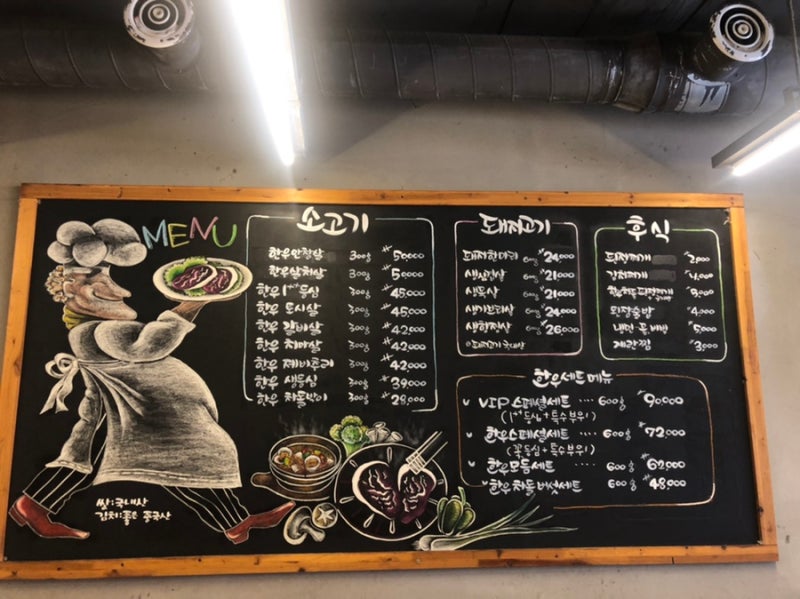 MENU
소고기
한우안창살 300g ₩50,000
한우살치살 300g ₩50,000
한우 1++등심 300g ₩45,000
한우 도시살 300g ₩45,000
한우 갈비살 300g ₩42,000
한우 치마살 300g ₩42,000
한우 제비추리 300g ₩42,000
한우 생등심 300g ₩39,000
한우 차돌박이 300g ₩28,000
돼지고기
돼지한마리 600g ₩24,000
생삼겹살 600g ₩21,000
생목살 600g ₩21,000
생가브리살 600g ₩24,000
생항정살 600g ₩26,000
돼지고기 국내산
후식
된장찌개 ₩2,000
김치찌개 ₩4,000
된장찌개
된장술밥 ₩4,000
냉면 물,비빔 ₩5,000
계란찜 ₩3,000
한우세트메뉴
VIP스페셜세트 .... 600g ₩90,000
(1++등심+특수부위)
한우스페셜세트 .... 600g ₩72,000
(꽃등심+특수부위)
한우모듬세트 600g ₩62,000
한우차돌버섯세트 600g ₩48,000
쌀:국내산
김치:좋은 중국산